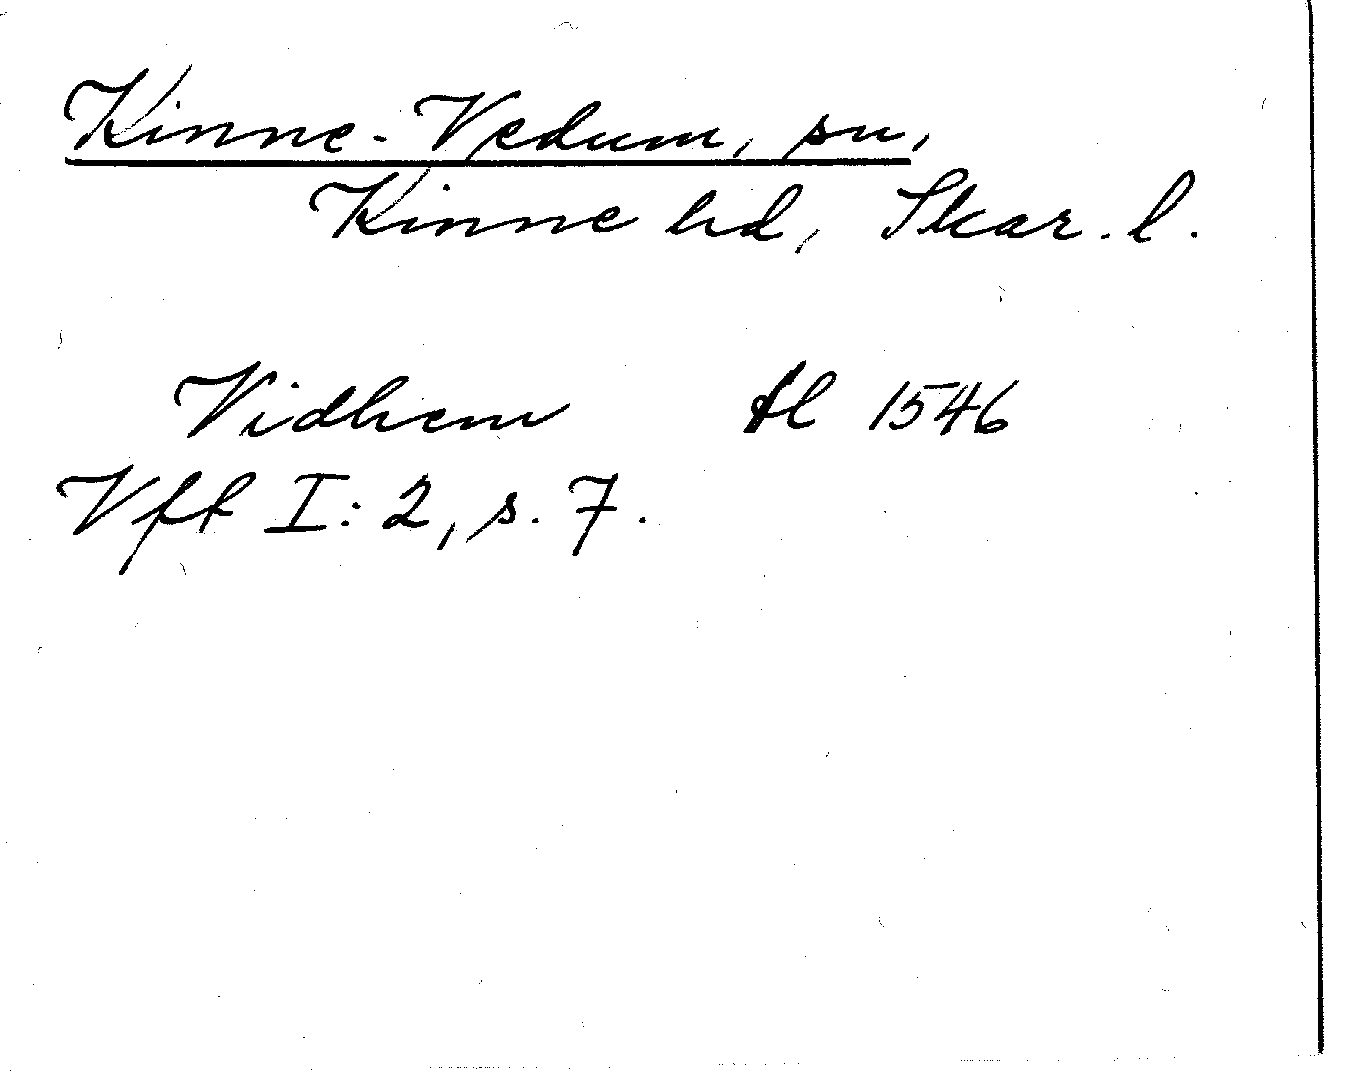 Kinne-Vedum, sn,
Kinne hd, Skar. l.
Vidhem Al 1546
Vft I: 2, s. 7.